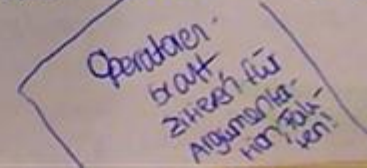 Operatoren-
blatt
zitieren für
Argumenta-
tion, Fak-
ten!